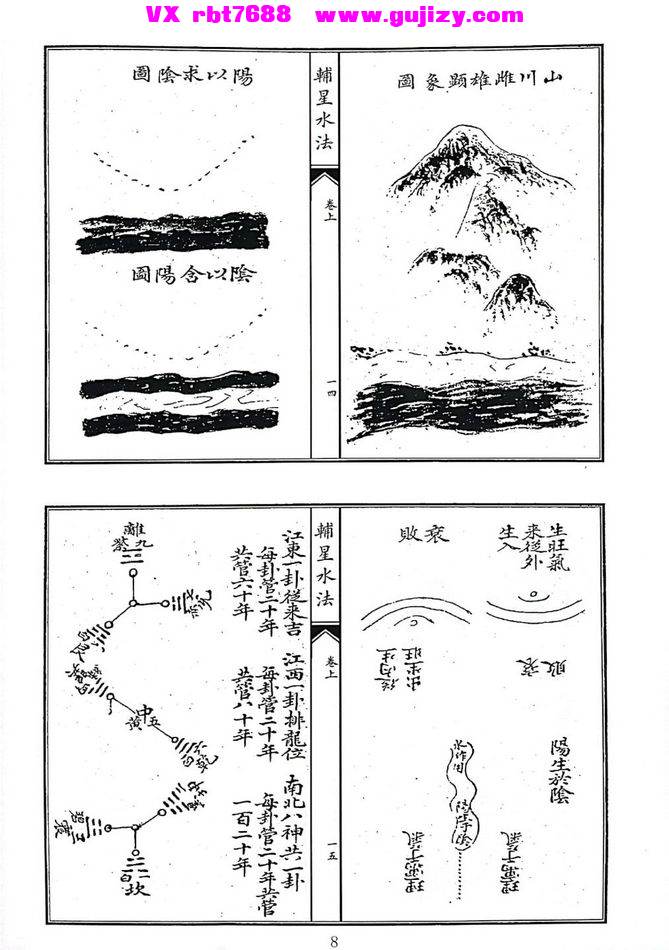 VX rbt7688 www.gujizy.com
山川雌雄顯象圖
輔星水法
卷上
一四
陽以求陰圖
陰以含陽圖
生旺氣
来從外
生入
衰敗
衰敗
從內生
出生旺
陽生於陰
水作用
陽生于陰
輔星水法
卷上
一五
江東一卦從来吉
每卦管二十年
共管六十年
江西一卦排龍位
每卦管二十年
共管八十年
南北八神共一卦
每卦管二十年共管
一百二十年
離九紫
中五黃
坎一白
8